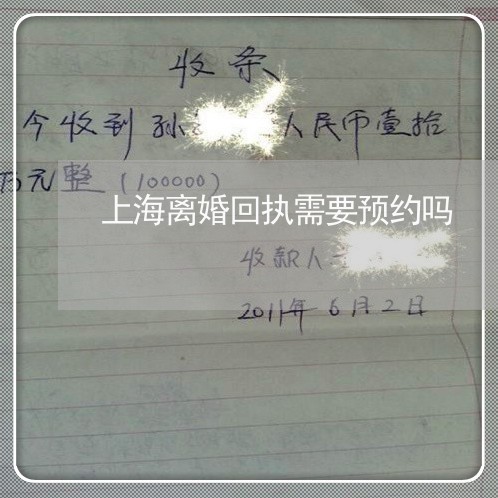 收条
今收到孙 人民币壹拾
万元整(100000)
上海离婚回执需要预约吗
收款人
2011年6月2日